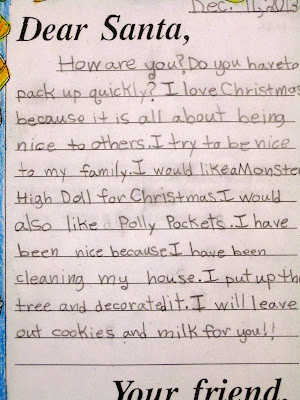 Dec. 11, 2013
Dear Santa,
How are you? Do you have to
pack up quickly? I love Christmas
because it is all about being
nice to others. I try to be nice
to my family. I would like a Monster
High Doll for Christmas I would
also like Polly Pockets. I have
been nice because I have been
cleaning my house. I put up the
tree and decorated it. I will leave
out cookies and milk for you!!
Your friend,